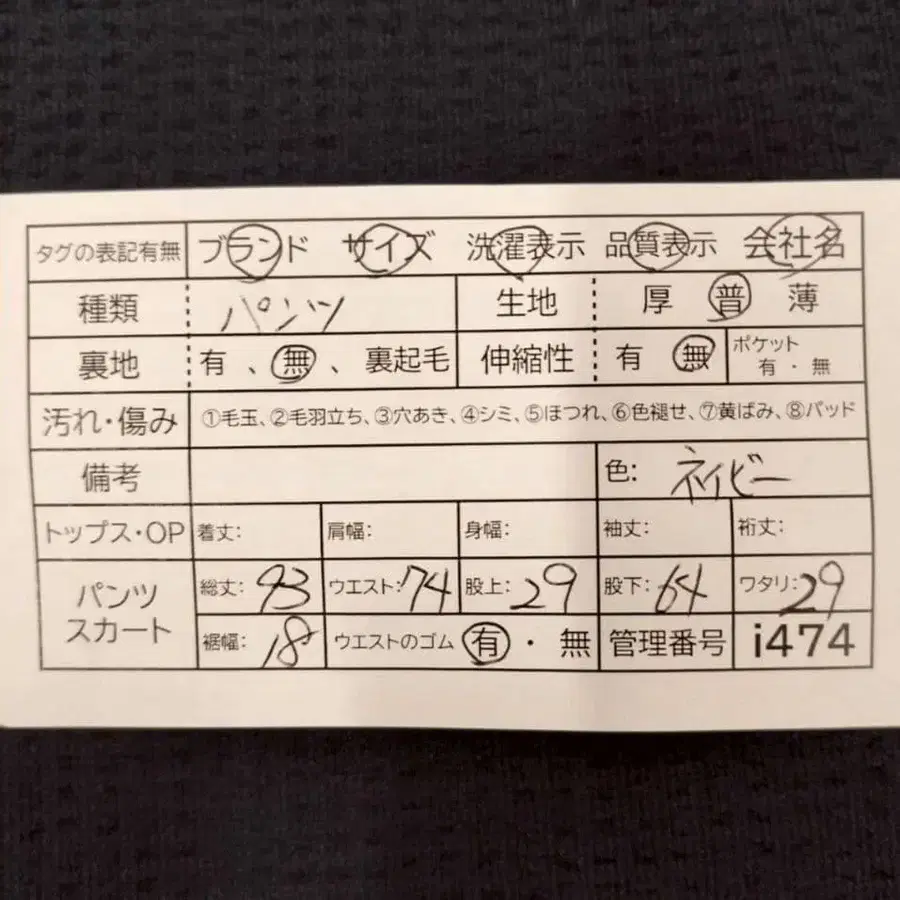 タグの表記有無 ブランド サイズ 洗濯表示 品質表示 会社名
種類 パンツ 生地 厚 普 薄
裏地 有 、 無 、 裏起毛 伸縮性 有 無 ポケット 有 ・ 無
汚れ・傷み ①毛玉、②毛羽立ち、③穴あき、④シミ、⑤ほつれ、⑥色褪せ、⑦黄ばみ、⑧パッド
備考 色: ネイビー
トップス・OP 着丈: 肩幅: 身幅: 袖丈: 裄丈:
パンツ スカート 総丈: 93 ウエスト: 74 股上: 29 股下: 64 ワタリ: 29
裾幅: 18 ウエストのゴム 有 ・ 無 管理番号 i474